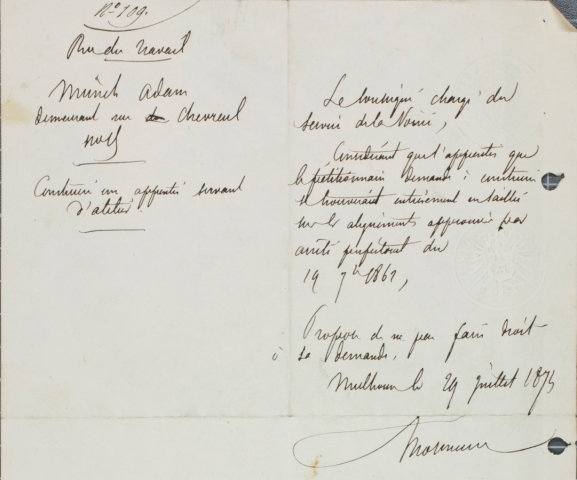 No 109.
Rue du Travail
Münch Adam
demeurant rue de Chevreul
No
Construire un appentis servant
d'atelier.
Le soussigné chargé du
service de la Voirie,
Considérant que l'appentis que
le pétitionnaire demande à construire
se trouverait entièrement en saillie
sur les alignements approuvés par
arrêté préfectoral du
19 7bre 1861,
Propose de ne pas faire droit
à sa demande.
Mulhouse le 29 juillet 1874